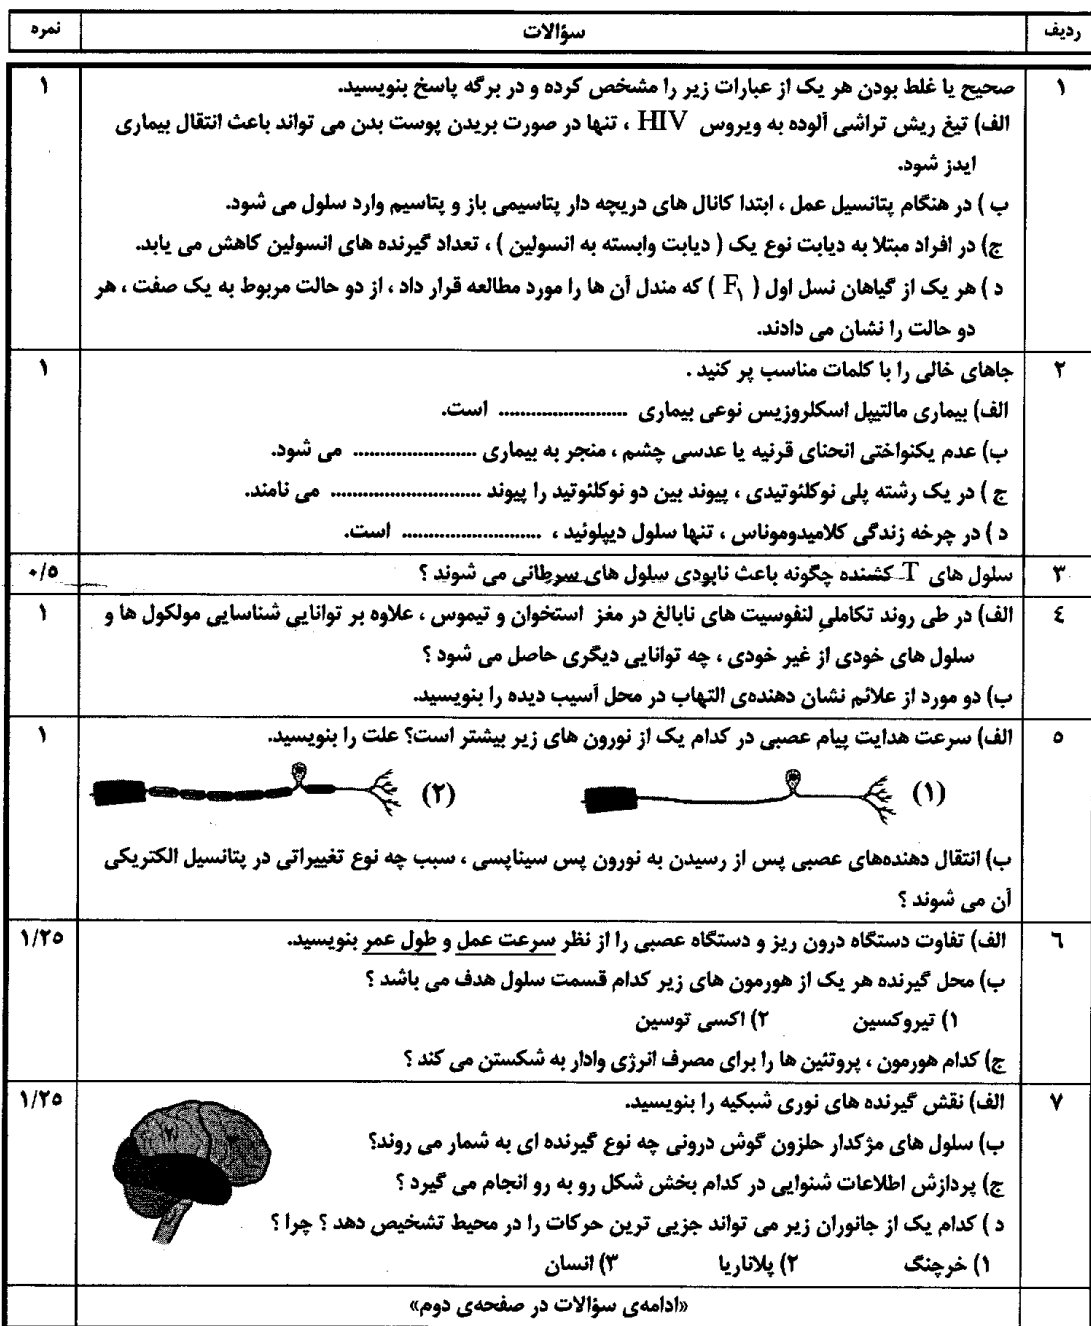 ردیف	سؤالات	نمره
۱	صحیح یا غلط بودن هر یک از عبارات زیر را مشخص کرده و در برگه پاسخ بنویسید.	۱
الف) تیغ ریش تراشی آلوده به ویروس HIV ، تنها در صورت بریدن پوست بدن می تواند باعث انتقال بیماری
ایدز شود.
ب ) در هنگام پتانسیل عمل ، ابتدا کانال های دریچه دار پتاسیمی باز و پتاسیم وارد سلول می شود.
ج) در افراد مبتلا به دیابت نوع یک ( دیابت وابسته به انسولین ) ، تعداد گیرنده های انسولین کاهش می یابد.
د ) هر یک از گیاهان نسل اول ( F۱ ) که مندل آن ها را مورد مطالعه قرار داد ، از دو حالت مربوط به یک صفت ، هر
دو حالت را نشان می دادند.
۲	جاهای خالی را با کلمات مناسب پر کنید .	۱
الف) بیماری مالتیپل اسکلروزیس نوعی بیماری ......................... است.
ب) عدم یکنواختی انحنای قرنیه یا عدسی چشم ، منجر به بیماری ........................ می شود.
ج ) در یک رشته پلی نوکلئوتیدی ، پیوند بین دو نوکلئوتید را پیوند ............................. می نامند.
د ) در چرخه زندگی کلامیدوموناس ، تنها سلول دیپلوئید ، ........................... است.
۳	سلول های T کشنده چگونه باعث نابودی سلول های سرطانی می شوند ؟	۰/۵
٤	الف) در طی روند تکاملیِ لنفوسیت های نابالغ در مغز استخوان و تیموس ، علاوه بر توانایی شناسایی مولکول ها و	۱
سلول های خودی از غیر خودی ، چه توانایی دیگری حاصل می شود ؟
ب) دو مورد از علائم نشان دهنده‌ی التهاب در محل آسیب دیده را بنویسید.
۵	الف) سرعت هدایت پیام عصبی در کدام یک از نورون های زیر بیشتر است؟ علت را بنویسید.	۱
(۱)	(۲)
ب) انتقال دهنده‌های عصبی پس از رسیدن به نورون پس سیناپسی ، سبب چه نوع تغییراتی در پتانسیل الکتریکی
آن می شوند ؟
٦	الف) تفاوت دستگاه درون ریز و دستگاه عصبی را از نظر سرعت عمل و طول عمر بنویسید.	۱/۲۵
ب) محل گیرنده هر یک از هورمون های زیر کدام قسمت سلول هدف می باشد ؟
۱) تیروکسین	۲) اکسی توسین
ج) کدام هورمون ، پروتئین ها را برای مصرف انرژی وادار به شکستن می کند ؟
۷	الف) نقش گیرنده های نوری شبکیه را بنویسید.	۱/۲۵
ب) سلول های مژکدار حلزون گوش درونی چه نوع گیرنده ای به شمار می روند؟
ج) پردازش اطلاعات شنوایی در کدام بخش شکل رو به رو انجام می گیرد ؟
د ) کدام یک از جانوران زیر می تواند جزیی ترین حرکات را در محیط تشخیص دهد ؟ چرا ؟
۱) خرچنگ	۲) پلاناریا	۳) انسان
«ادامه‌ی سؤالات در صفحه‌ی دوم»